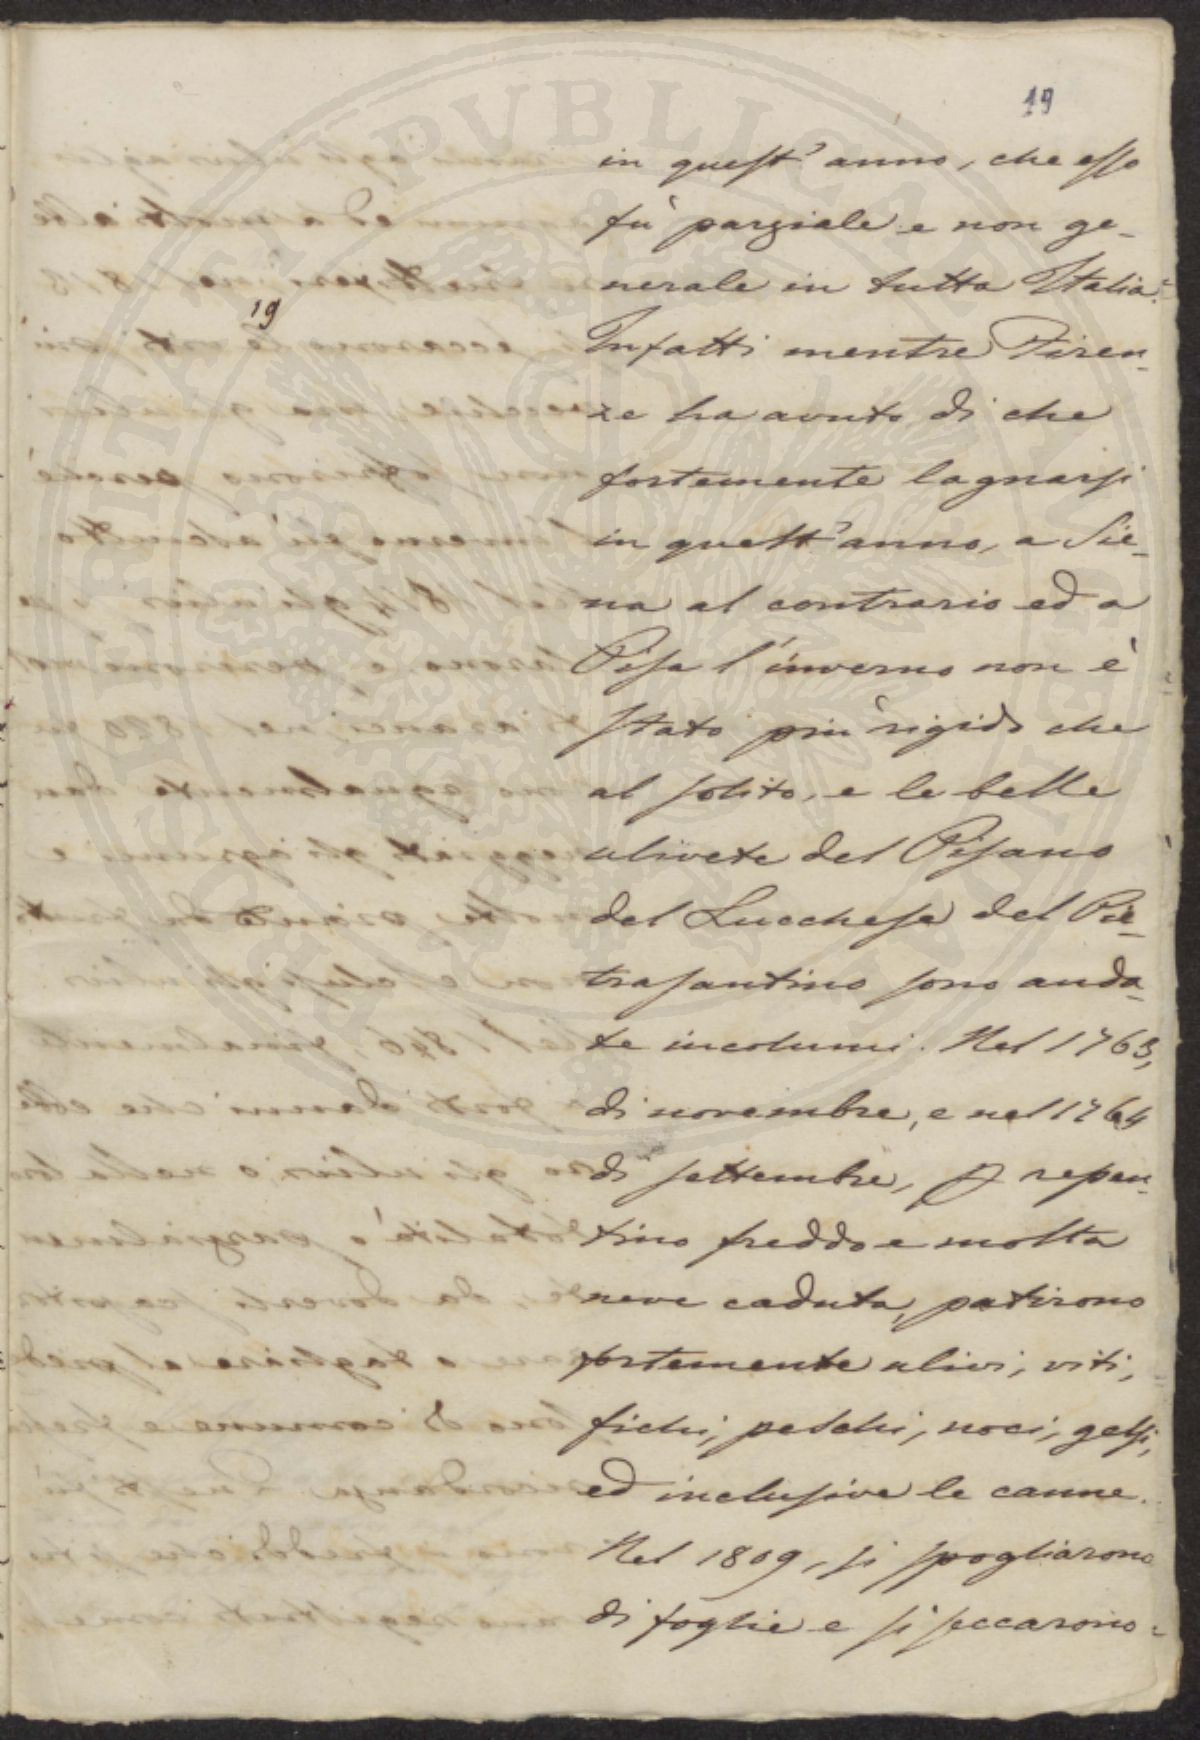 19
19
in quest' anno, che esso
fù parziale e non ge-
nerale in tutta Italia.
Infatti mentre Firen-
ze ha avuto di che
fortemente lagnarsi
in quest' anno, a Sie-
na al contrario ed a
Pisa l'inverno non è
stato più rigido che
al solito, e le belle
ulivete del Pisano
del Lucchese del Pie-
trasantino sono anda-
te incolumi. Nel 1763,
di novembre, e nel 1764
di settembre, repen-
tino freddo e molta
neve caduta, patirono
fortemente ulivi, viti,
fichi, peschi, noci, gelsi,
ed inclusive le canne.
Nel 1809, si spogliarono
di foglie e si seccarono